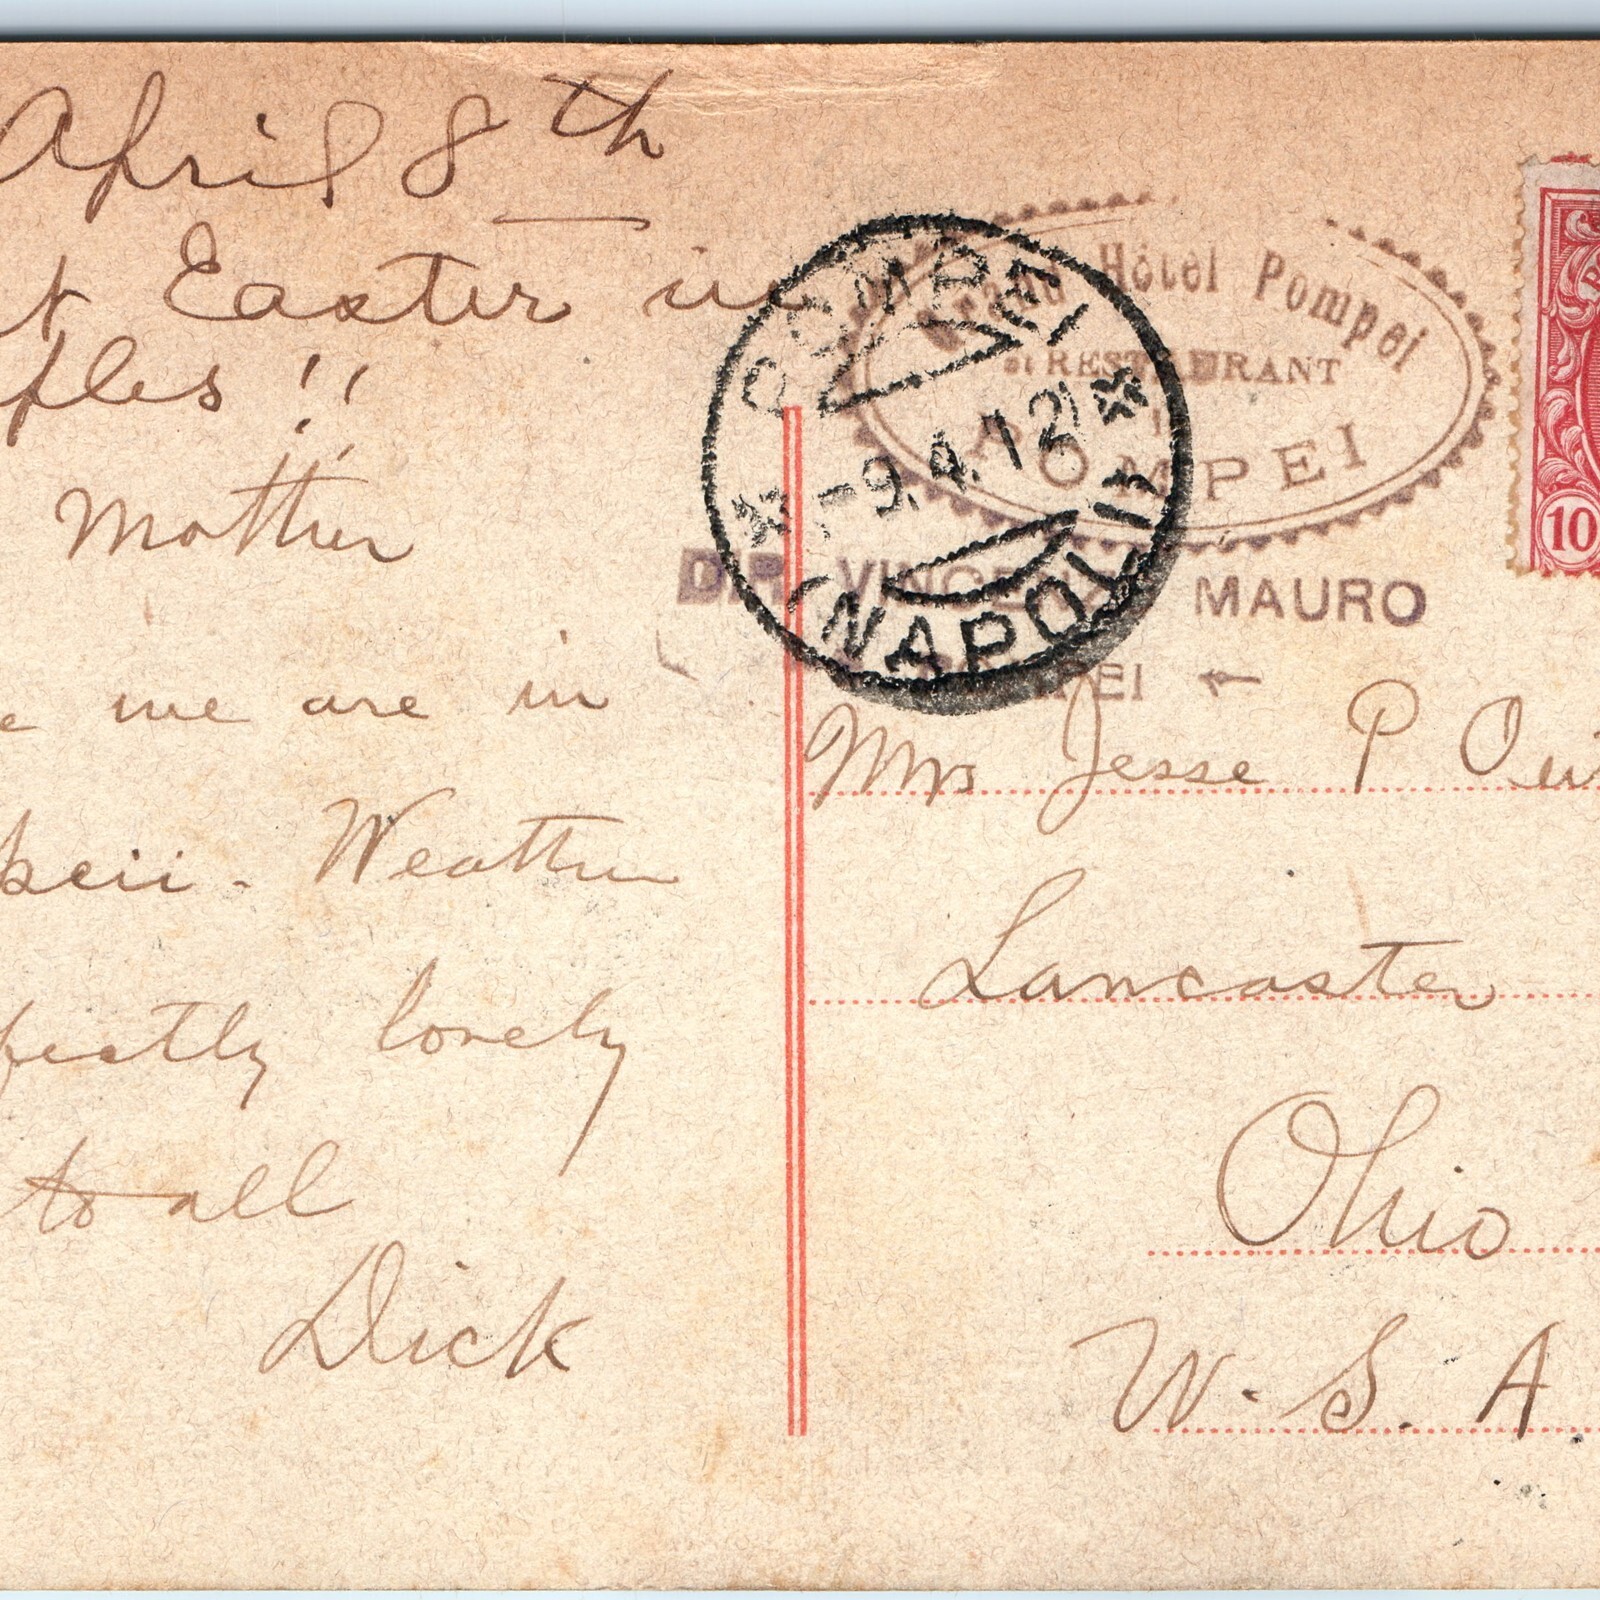 April 8th
Easter in
ples !!
Mother
we are in
peii - Weather
fectly lovely
to all
Dick
POMPEI
-9.4.12
(NAPOLI)
Grand Hôtel Pompei
et RESTAURANT
POMPEI
DIR. VINCENZO MAURO
POMPEI
10
Mrs Jesse P
Lancaster
Ohio
U. S. A